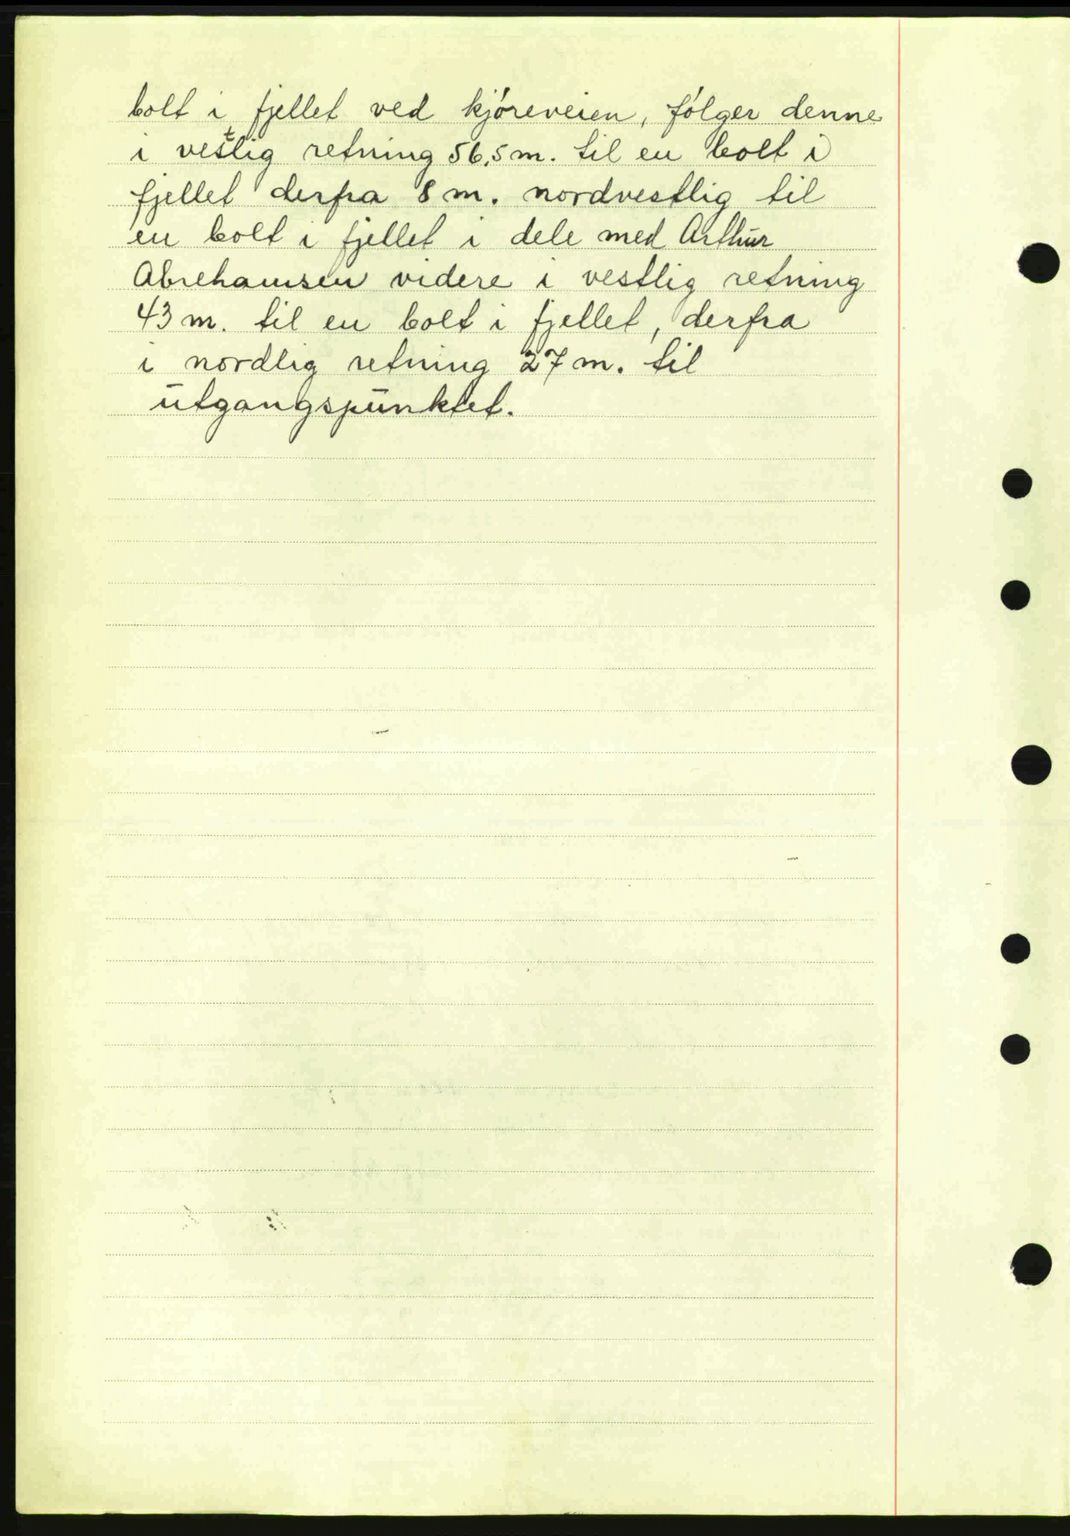 bolt i fjellet ved kjóreveien, fólger denne
i vestlig retning 56,5 m. til en bolt i
fjellet derfra 8 m. nordvestlig til
en bolt i fjellet i dele med Arthur
Abrehamsen videre i vestlig retning
43 m. til en bolt i fjellet, derfra
i nordlig retning 27 m. til
utgangspunktet.